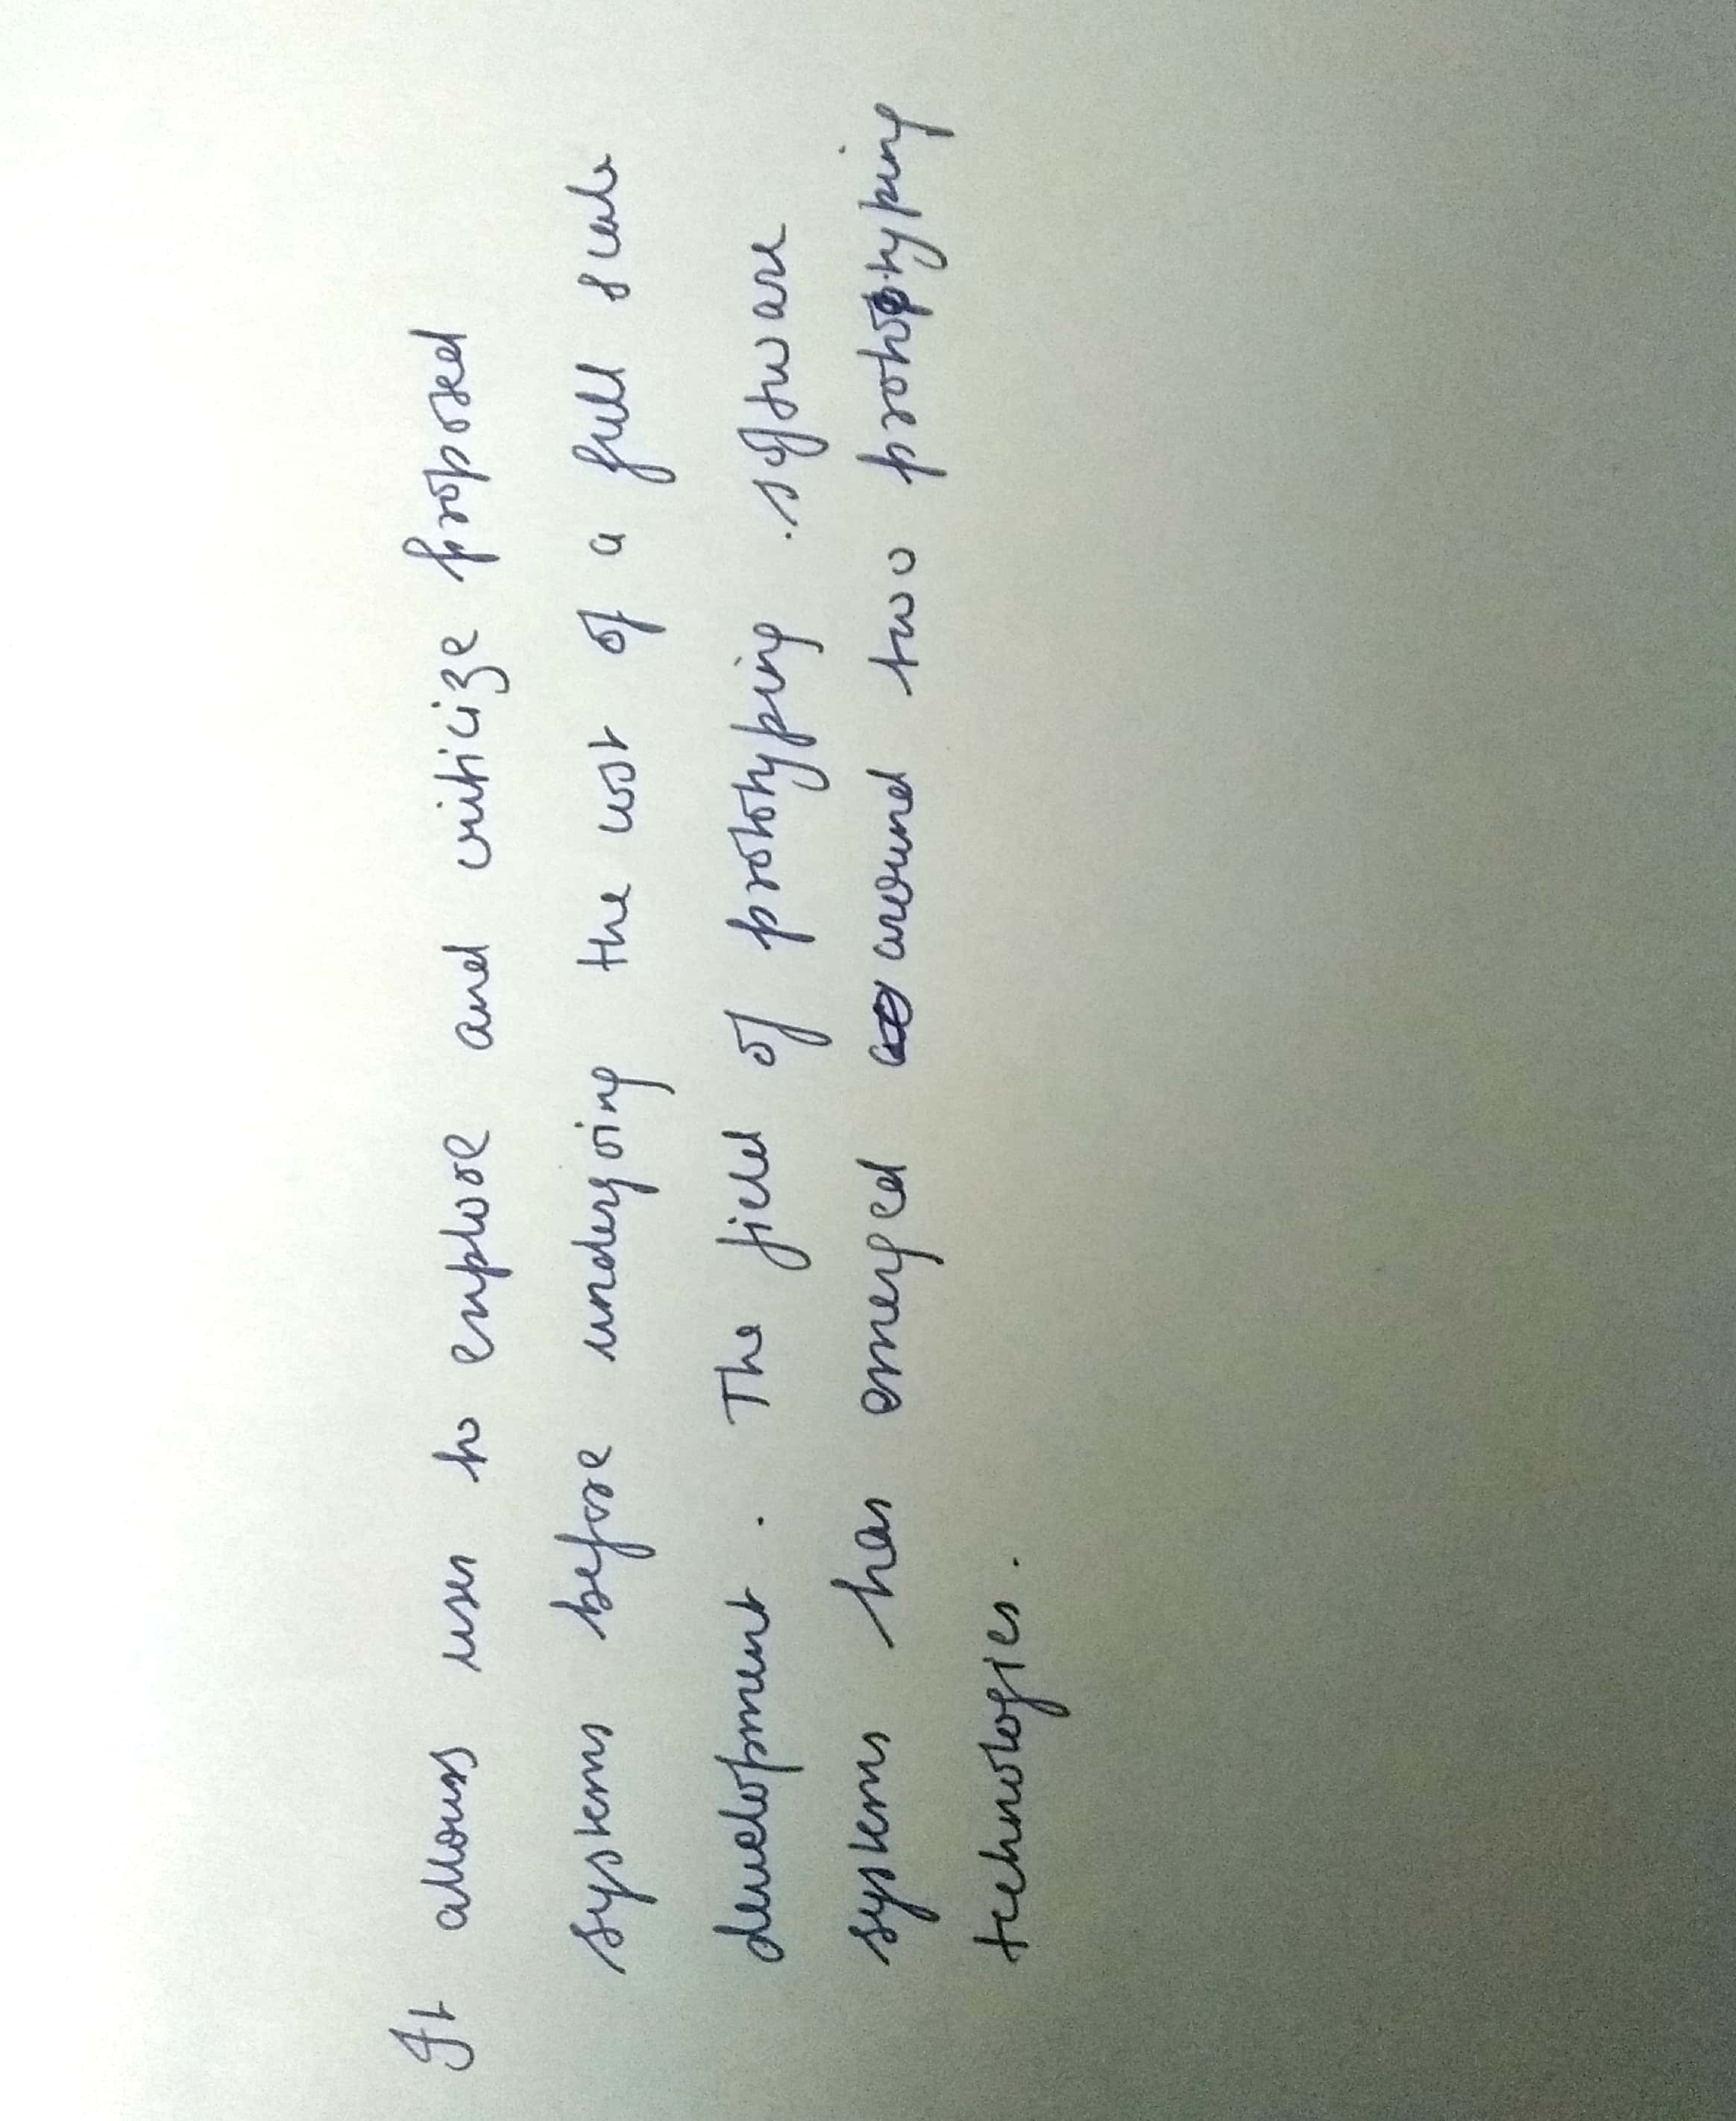 It allows user to explore and criticize proposed
systems before undergoing the cost of a full scale
development. The field of prototyping software
systems has emerged around two prototyping
technologies.